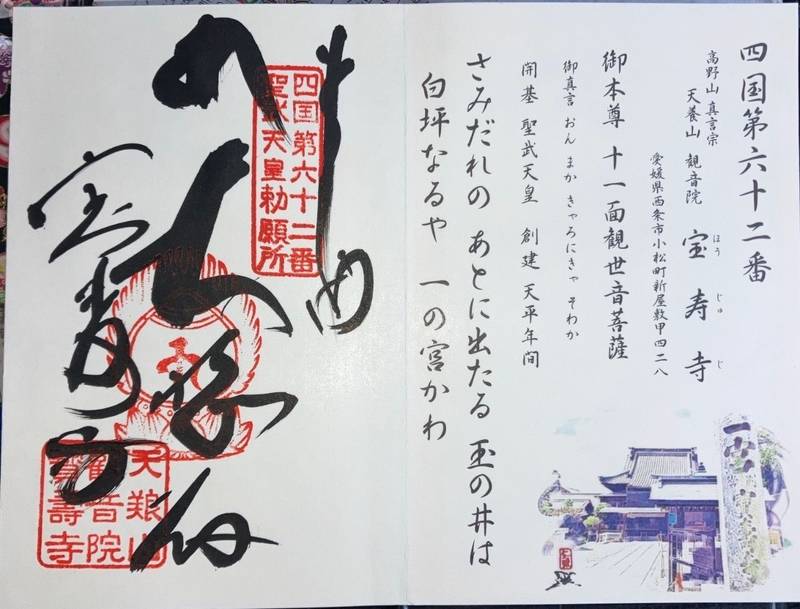 四国第六十二番
高野山 真言宗
天養山 観音院 宝寿寺
ほうじゅじ
愛媛県西条市小松町新屋敷甲四二八
御本尊 十一面観世音菩薩
御真言 おん まか きゃろにきゃ そわか
開基 聖武天皇 創建 天平年間
さみだれの あとに出たる 玉の井は
白坪なるや 一の宮かわ
四国第六十二番
聖武天皇勅願所
宝寿寺
天養山
觀音院
寶壽寺